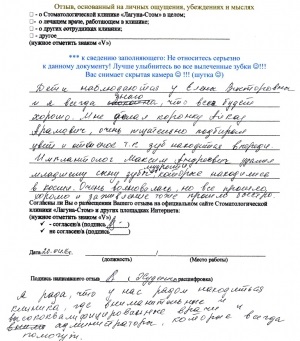 Отзыв, основанный на личных ощущениях, убеждениях и мыслях
- о Стоматологической клинике «Лагуна-Стом» в целом;
- о лечащем враче, работающем в клинике;
- о других сотрудниках клиники;
- другое
(нужное отметить знаком «V»)
*** к сведению заполняющего: Не относитесь серьезно
к данному документу! Лучше улыбнитесь во все вылеченные зубки ☺!!!
Вас снимает скрытая камера ☺ !!! (шутка ☺)
Дети наблюдаются у Викторовны
и я всегда знаю, что все будет
хорошо. Мне делал коронку
очень тщательно подбирал
цвет и т.к. зуб находится впереди.
Имплантолог Максим Андреевич удалял
младшему сыну зубы, которые находились
в Очень волновалась, но все прошло
хорошо и заживление тоже прошло быстро.
Согласны ли Вы о размещении Вашего отзыва на официальном сайте Стоматологической
клиники «Лагуна-Стом» и других площадках Интернета:
(нужное отметить знаком «V»)
- согласен/а (подпись)
не согласен/а (подпись)
Дата
(должность) (Место работы)
Подпись написавшего отзыв (расшифровка)
Я рада, что у нас рядом находится
клиника, где внимательные и
высококвалифицированные врачи и
администраторы, которые всегда
помогут.